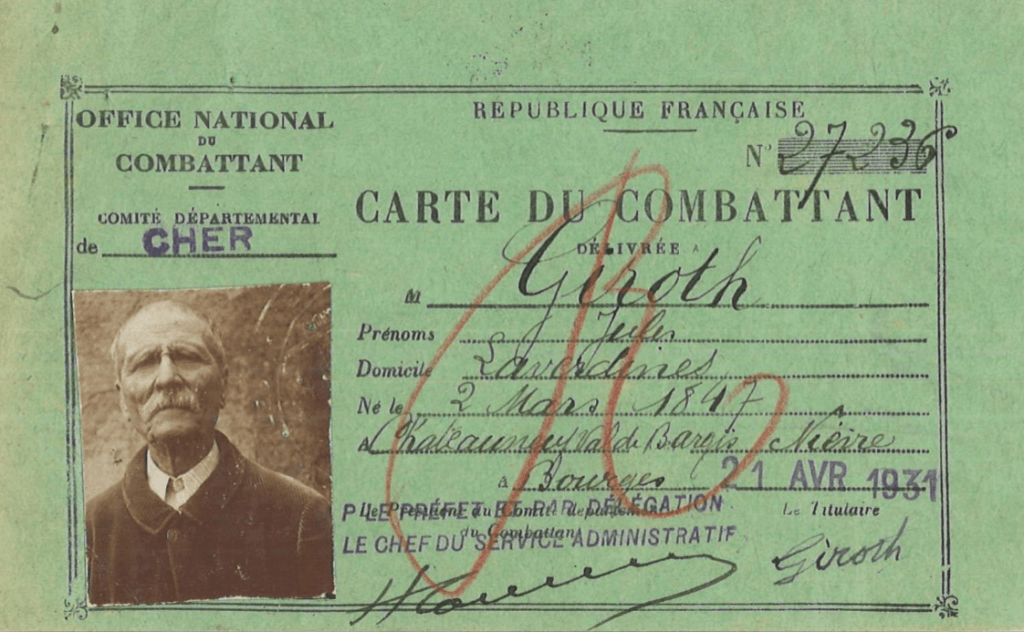 OFFICE NATIONAL
DU
COMBATTANT
COMITÉ DÉPARTEMENTAL
de CHER
RÉPUBLIQUE FRANÇAISE
N° 27236
CARTE DU COMBATTANT
DÉLIVRÉE A
M Giroth
Prénoms Jules
Domicile Laverdines
Né le 2 Mars 1847
A Chateauneuf Val de Bargis Nièvre
à Bourges 21 AVR 1931
Le Président du Comité départemental
du Combattant
P. LE PRÉFET ET PAR DÉLÉGATION
LE CHEF DU SERVICE ADMINISTRATIF
Le Titulaire
Giroth